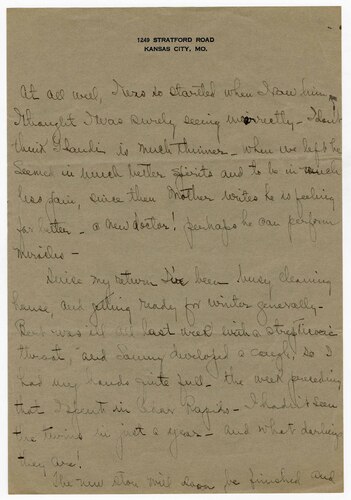 1249 STRATFORD ROAD
KANSAS CITY, MO.
At all well, I was so startled when I saw him,
I thought I was surely seeing incorrectly - I don't
think Hardin is much thinner - when we left he
seemed in much better spirits and to be in much
less pain, since then Mother writes he is feeling
far better - a new doctor! perhaps he can perform
miracles -
Since my return I've been busy cleaning
house, and getting ready for winter generally -
was ill all last week with a streptococci
throat, and Sammy developed a cough, so I
had my hands quite full - the week preceding
that I spent in Cedar Rapids - I hadn't seen
the twins in just a year - and what darlings
they are!
The new store will soon be finished and